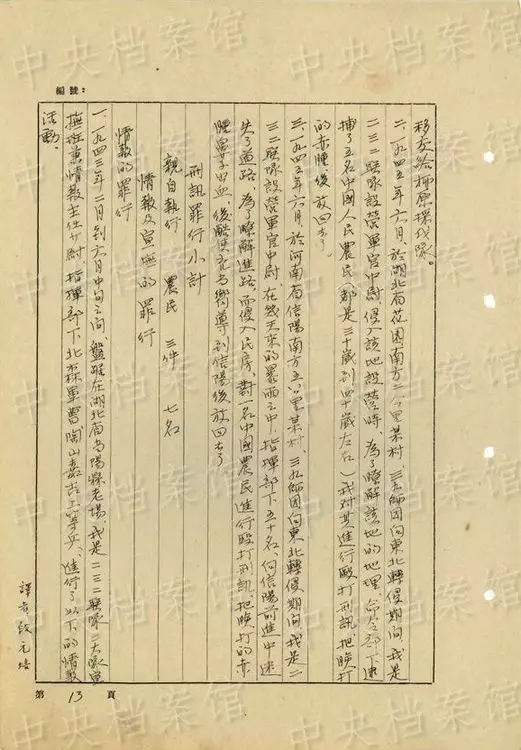 中央档案馆
編號：
移交给柳原探伐隊。
二、一九四五年六月，於湖北省花园南方二公里某村，三九師团向東北轉侵期间，我是
二三二联隊設營軍官中尉，侵入該地設營時，為了瞭解該地的地理，命令部下逮
捕了五名中國人民農民（都是三十歲到四十歲左右）我对其進行毆打刑訊，把臉打
的赤腫，後放回去了。
三、一九四五年六月，於河南省信陽南方五公里某村，三九師团向東北轉侵期间，我是二
三二联隊設營軍官中尉，在幾天來的暴雨之中，指揮部下五十名，向信陽前進中迷
失了道路，為了瞭解進路，而侵入民房，對一名中國農民進行毆打刑訊，把臉打的赤
腫鼻子出血，後酷使充当嚮導到信陽後放回去了
刑訊罪行小計
親自執行 農民 三件 七名
情報及宣撫的罪行
情報的罪行
一、一九四三年二月到六月中旬之间，盤踞在湖北省当陽縣老場，我是二三二联隊二大隊宣
撫班兼情報主任少尉，指揮部下北森軍曹陶山嘉吉上等兵，進行了以下的情報
活動
譯者 元培
第 13 頁
中央档案馆